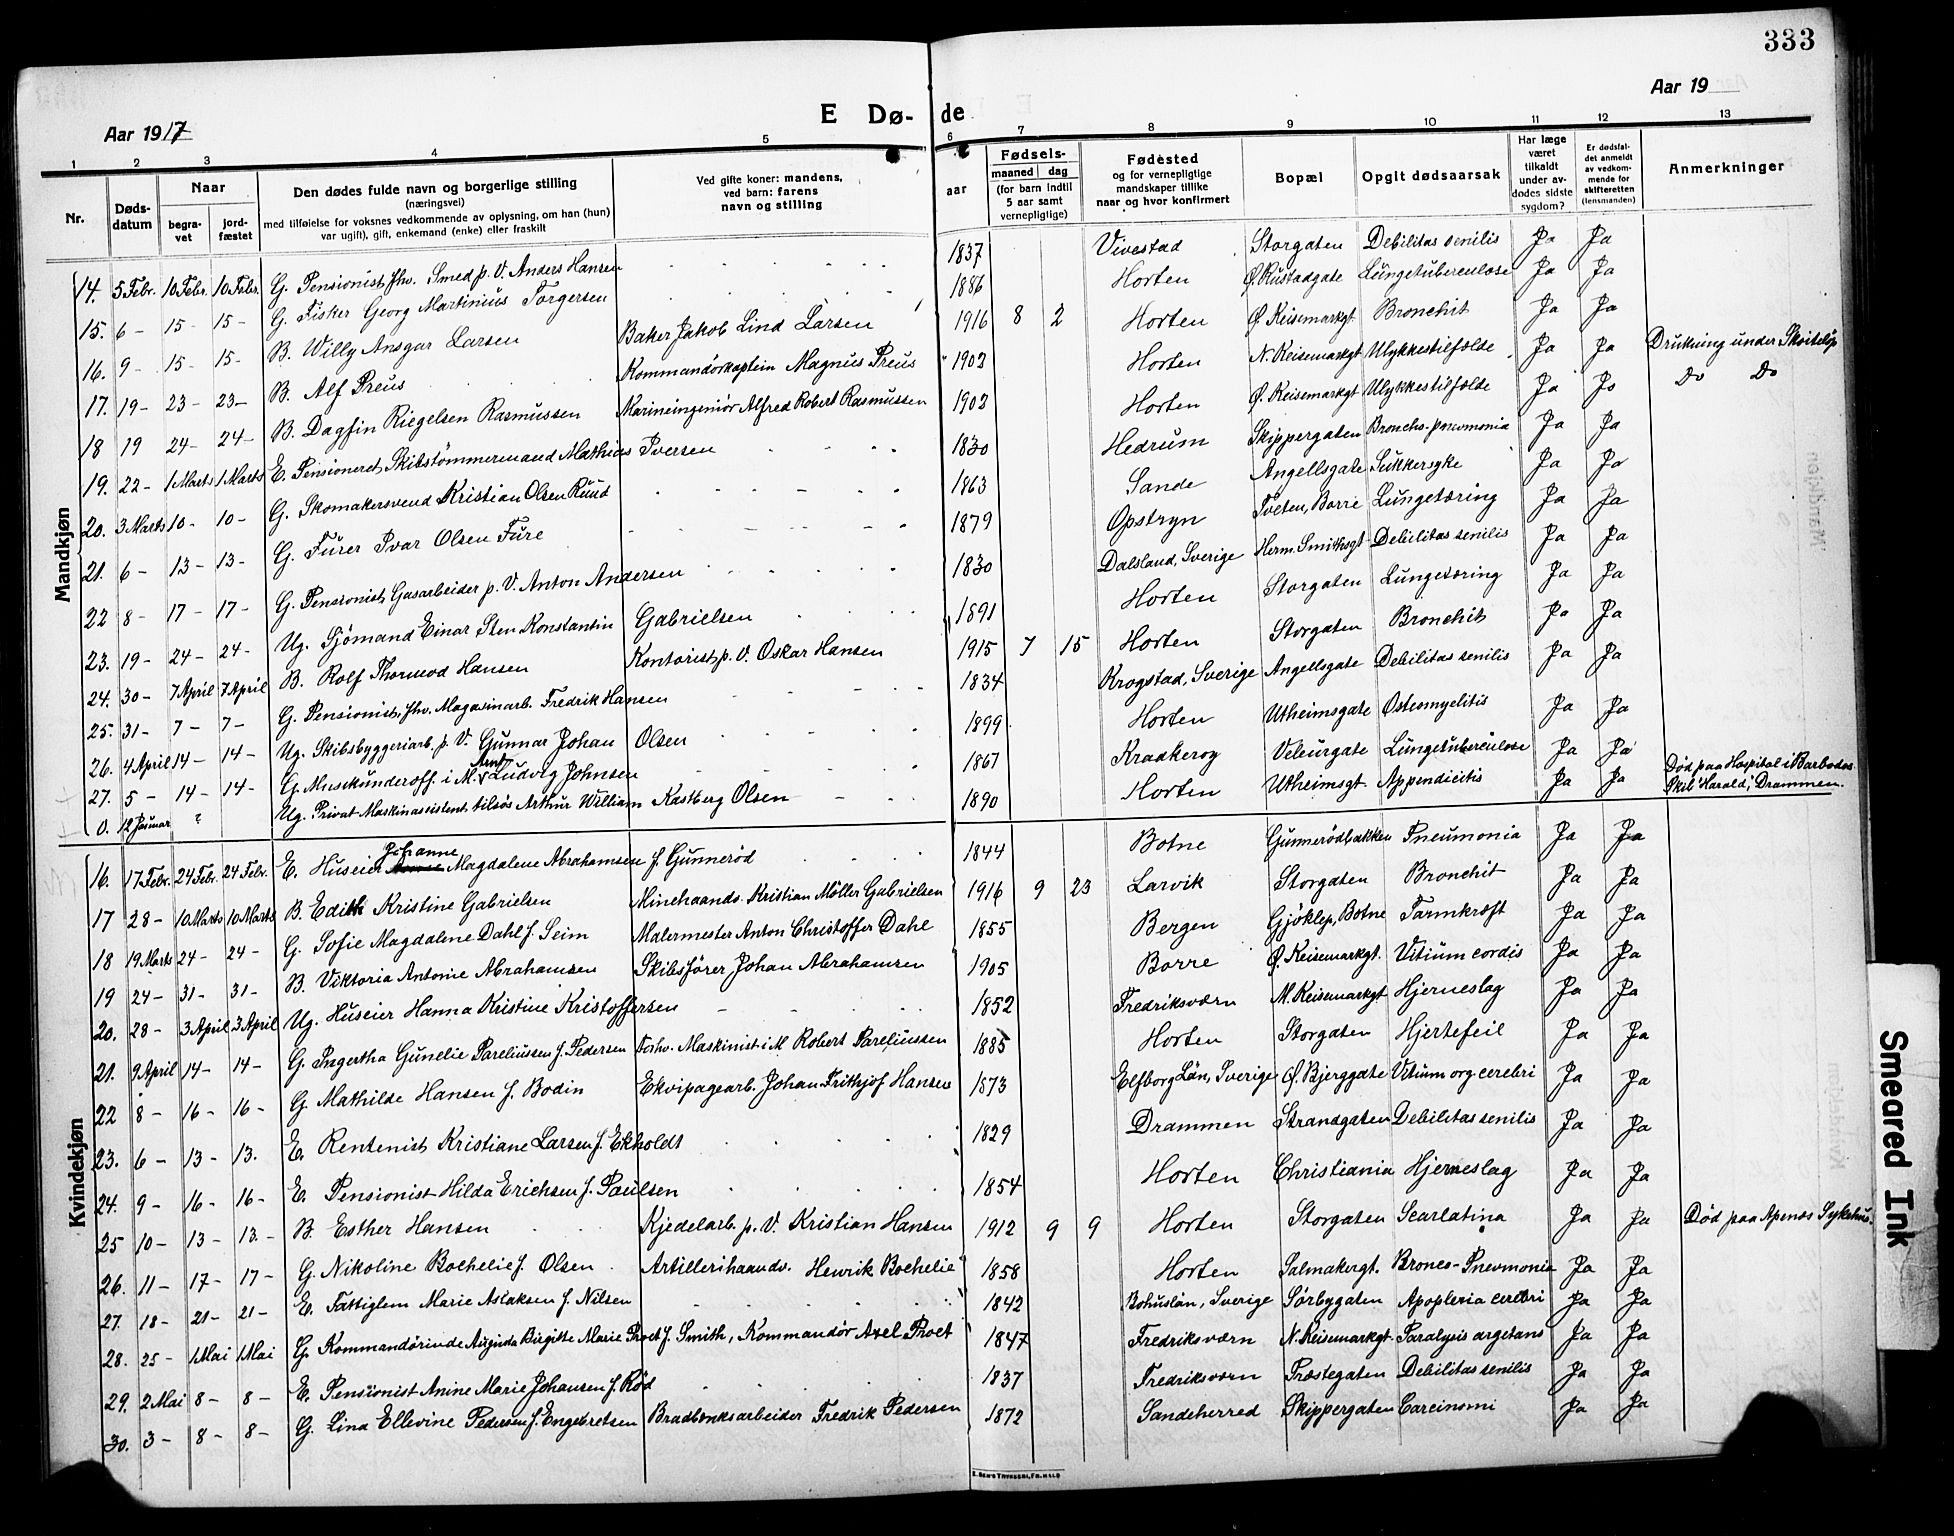 333
Aar 1917
E Dø-
de
Aar 19
1 2 3 4 5 6 7 8 9 10 11 12 13
Nr.
Døds-datum
Naar
begra-vet
jord-fæstet
Den dødes fulde navn og borgerlige stilling
(næringsvei)
med tilføielse for voksnes vedkommende av oplysning, om han (hun)
var ugift), gift, enkemand (enke) eller fraskilt
Ved gifte koner: mandens,
ved barn: farens
navn og stilling
aar
Fødsels-
maaned dag
(for barn indtil
5 aar samt
vernepligtige)
Fødested
og for vernepligtige
mandskaper tillike
naar og hvor konfirmert
Bopæl
Opgit dødsaarsak
Har læge
været
tilkaldt
under av-
dødes sidste
sygdom?
Er dødsfal-
det anmeldt
av vedkom-
mende for
skifteretten
(lensmanden)
Anmerkninger
Mandkjøn
14. 5 Febr. 10 Febr. 10 Febr. G. Pensionist fhv. Smed p. V. Anders Hansen 1837 Vivestad Storgaten Debilitas senilis Ja Ja
15. 6 - 15 - 15 - G. Fisker Georg Martinius Torgersen 1886 Horten Ø. Rustadgate Lungetuberculose Ja Ja
16. 9 - 15 - 15 - B. Willy Ansgar Larsen Baker Jakob Lind Larsen 1916 8 2 Horten Ø. Keisemarkgt Bronchit Ja Ja
17. 19 - 23 - 23 - B. Alf Preus Kommandörkaptein Magnus Preus 1902 Horten N. Keisemarkgt Ulykkestilfælde Ja Ja Drukning under Skøiteløp
18 19 24 - 24 - B. Dagfin Riegelsen Rasmussen Marineingeniör Alfred Robert Rasmussen 1902 Horten Ø. Keisemarkgt Ulykkestilfælde Ja Ja Do Do
19. 22 - 1 Marts 1 Marts E. Pensioneret Skibstömmermand Mathias Iversen 1830 Hedrum Skippergaten Bronchs-pneumonia Ja Ja
20. 3 Marts 10 - 10 - G. Skomakersvend Kristian Olsen Ruud 1863 Sande Angellsgate Sukkersyke Ja Ja
21. 6 - 13 - 13 - G. Furer Ivar Olsen Fure 1879 Opstryn Tveten, Borre Lungetæring Ja Ja
22 8 - 17 - 17 - G. Pensionist Gasarbeider p. V. Anton Andersen 1830 Dalsland, Sverige Herm. Smithsgt Debilitas senilis Ja Ja
23. 19 - 24 - 24 - Ug. Sjömand Einar Sten Konstantin Gabrielsen 1891 Horten Storgaten Lungetæring Ja Ja
24. 30 - 7 April 7 April B. Rolf Thormod Hansen Kontorist p. V. Oskar Hansen 1915 7 15 Horten Storgaten Bronchit Ja Ja
25. 31 - 7 - 7 - G. Pensionist, fhv. Magasinarb. Fredrik Hansen 1834 Krogstad, Sverige Angellsgate Debilitas senilis Ja Ja
26. 4 April 14 - 14 - Ug. Skibsbyggeriarb. p. V. Gunnar Johan Olsen 1899 Horten Utheimsgate Osteomyelitis Ja Ja
27. 5 - 14 - 14 - G. Musikunderoff. i M. Arnt Ludvig Johnsen 1867 Kraakerøy Veleurgate Lungetuberculose Ja Ja
0. 12 Januar ? Ug. Privat Maskinassistent tilsös Arthur William Kastberg Olsen 1890 Horten Utheimsgt. Appendicitis Ja Ja Død paa Hospital i Barbados
Skib "Harald", Drammen.
Kvindekjøn
16. 17 Febr. 24 Febr. 24 Febr. E. Huseier Johanne Magdalene Abrahamsen f. Gunneröd 1844 Botne Gunnerödbakken Pneumonia Ja Ja
17 28 - 10 Marts 10 Marts B. Edith Kristine Gabrielsen Minehaands. Kristian Möller Gabrielsen 1916 9 23 Larvik Storgaten Bronchit Ja Ja
18 19 Marts 24 - 24 - G. Sofie Magdalene Dahl f. Seim Malermester Anton Christoffer Dahl 1855 Bergen Gjöklep, Botne Tarmkræft Ja Ja
19 24 - 31 - 31 - B. Viktoria Antonie Abrahamsen Skibsförer Johan Abrahamsen 1905 Borre Ø. Keisemarkgt. Vitium cordis Ja Ja
20. 28 - 3 April 3 April Ug. Huseier Hanna Kristine Kristoffersen 1852 Fredriksværn M. Keisemarkgt Hjerneslag Ja Ja
21. 9 April 14 - 14 - G. Ingertha Gunelie Pareliussen f. Pedersen Forhv. Maskinist i M Robert Pareliussen 1885 Horten Storgaten Hjertefeil Ja Ja
22 8 - 16 - 16 - G. Mathilde Hansen f. Bodin Ekvipagearb. Johan Frithjof Hansen 1873 Elfborg Län, Sverige Ø. Bjerggate Vitium org. cerebri Ja Ja
23. 6 - 13 - 13. E. Rentenist Kristiane Larsen f. Ekholdt 1829 Drammen Strandgaten Debilitas senilis Ja Ja
24. 9 - 16 - 16 - E. Pensionist Hilda Erichsen f. Paulsen 1854 Horten Christiania Hjerneslag Ja Ja
25 10 - 13 - 13 - B. Esther Hansen Kjedelarb. p. V. Kristian Hansen 1912 9 9 Horten Storgaten Scarlatina Ja Ja Død paa Apenæs Sykehus.
26. 11 - 17 - 17 - G. Nikoline Bochelie f. Olsen Artillerihaands. Henrik Bochelie 1858 Horten Salmakergt. Bronco-Pnevmonia Ja Ja
27. 18 - 21 - 21 - E. Fattiglem Marie Aslaksen f. Nilsen 1842 Bohuslän, Sverige Sörbygaten Apoplexia cerebri Ja Ja
28. 25 - 1 Mai 1 Mai G. Kommandörinde Birgitte Marie Proet f. Smith, Kommandör Axel Proet 1847 Fredriksværn N. Keisemarkgt. Paralysis agetans Ja Ja
29. 2 Mai 8 - 8 - E. Pensionist Anine Marie Johansen f. Röd 1837 Fredriksværn Præstegaten Debilitas senilis Ja Ja
30. 3 - 8 - 8 - G. Lina Ellevine Pedersen f. Engebretsen Bradbænksarbeider Fredrik Pedersen 1872 Sandeherred Skippergaten Carcinomi Ja Ja
Smeared Ink